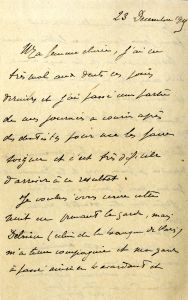 23 Decembre
Ma femme chérie, j'ai eu
très mal aux dents ces jours
derniers et j'ai passé une partie
de mes journées à courir après
des dentistes pour me les faire
soigner et c'est très difficile
d'arriver à ce résultat.
Je voulais vous écrire cette
nuit en prenant la garde, mais
(celui de la banque de
m'a tenu compagnie et ma garde
a passé ainsi en bavardant et